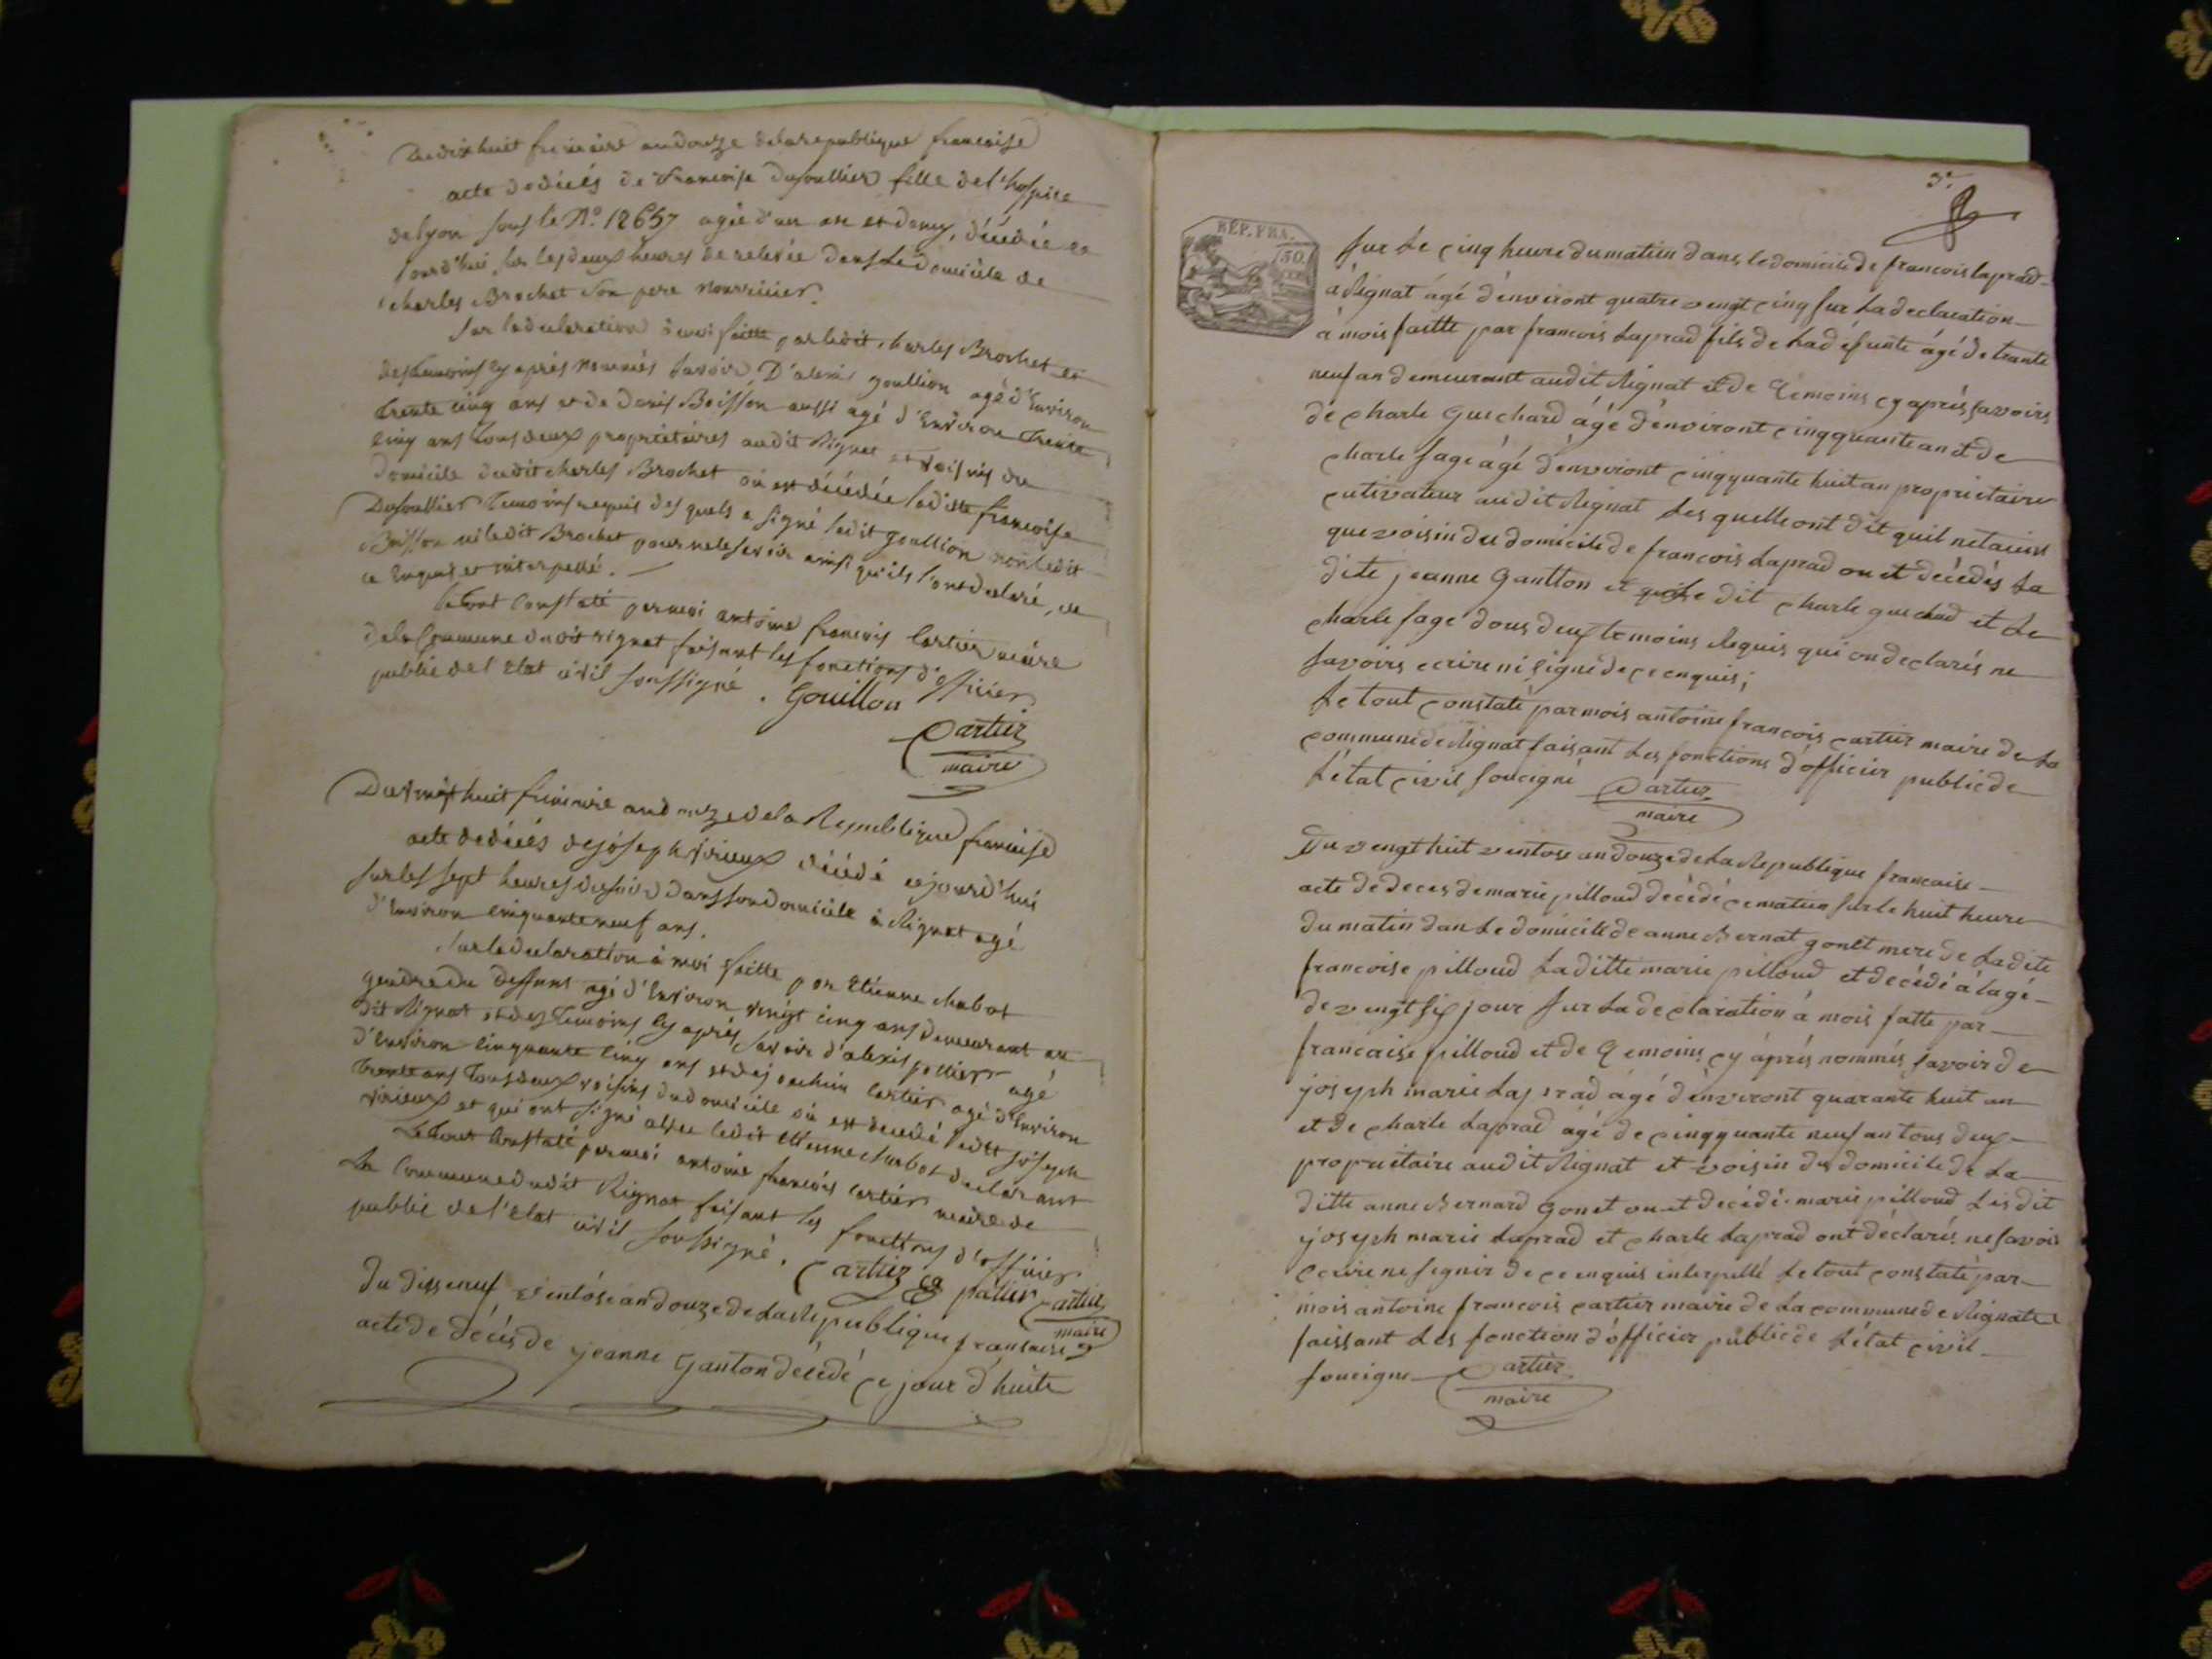 Du dix huit frimaire an douze de la republique francoise
acte de décès de Francoise Dusoullier fille de l'hospice
de lyon sous le N.o 12657 agée d'un an et demy, décédée ce
jourd'hui sur les deux heures de relevée dans le domicile de
charles Brochet son pere nourricier.
Sur la declaration à moi faitte par ledit charles Brochet et
des temoins cy après nommés savoir D'alexis goullion agé d'Environ
trente cinq ans et de denis Boisson aussi agé d'Environ trente
cinq ans tous deux propriétaires audit Rignat et voisins du
domicile dudit charles Brochet où est décédée laditte francoise
Dusoullier temoins requis des quels a signé ledit goullion non ledit
Boisson ni ledit Brochet pour ne le savoir ainsi qu'ils l'ont declaré, de
ce Enquis et interpellé.
Le tout Constaté par moi antoine francois Cartier maire
de la Commune dudit rignat faisant les fonctions d'officier
public de l'Etat civil soussigné. Gouillon
Cartier
maire
Du vingt huit frimaire an douze de la Republique francoise
acte de décés de joseph virieux décédé cejourd'hui
sur les sept heures du soir dans son domicile à Rignat agé
d'Environ cinquante neuf ans.
Sur la declaration à moi faitte par Etienne chabot
gendre du deffunt agé d'Environ vingt cinq ans demeurant au
dit Rignat et des temoins cy après savoir d'alexis pattier agé
d'Environ cinquante cinq ans et de joachim Cartier agé d'Environ
trente ans tous deux voisins du domicile où est decedé ledit joseph
virieux et qui ont signé avec ledit Etienne chabot declarant
Le tout Constaté par moi antoine francois Cartier maire de
la Commune dudit Rignat faisant les fonctions d'officier
public de l'Etat civil soussigné.
Cartier patier Cartier
maire
du disseneuf ventóse an douze de La Republique francaise
acte de décés de jeanne Ganton décédé ce jour d'huit
3e
RÉP. FRA.
50
sur Le cinq heure du matin dans le domicile de francois laprad
a Rignat ágé d'environt quatre vengt cinq sur La declaration
a mois faitte par francois Laprad fils de La défunte ágé de trante
neuf an demeurant audit Rignat et de temoins cy aprés savoirs
de charle Guichard ágé d'environt cingquante an et de
charle sage ágé d'environt cingquante huit an propriétaires
cutivateur audit Rignat Les quelle ont dit quil netaient
que voisin du domicile de francois Laprad ou et décédés La
dite jeanne Gantton et que Le dit charle guichard et Le
charle sage dous deux temoins Requis qui on declarés ne
savoirs ecrire ni signé de ce enquis;
Le tout constaté par mois antoine francois cartier maire de La
commune de Rignat faisant Les fonctions d'officier public de
L'état civil soucigné Cartier
maire
Du vengt huit ventose an douze de La Republique francaise
acte de deces de marie pilloud décédé ce matin sur le huit heure
du matin dan Le domicile de anne Bernat gonet mere de Ladite
francoise pilloud Laditte marie pilloud et decédé à lagé
de vengt six jour sur La declaration á mois fatte par
francaise pilloud et de temoins cy áprés nommés savoir de
joseph marie Laprad ágé d'environt quarante huit an
et de charle Laprad ágé de cingquante neuf an tous deux
propriétaire audit Rignat et voisin du domicile de La
ditte anne Bernard Gonet ou et décédé marie pilloud Les dit
joseph marie Laprad et charle Laprad ont déclarés ne savoir
ecrire ne signér de ce enquis interpellé Le tout constaté par
mois antoine francois cartier maire de La commune de Rignat
faissant Les fonction d'officier public de L'état civil
soucigne Cartier
maire